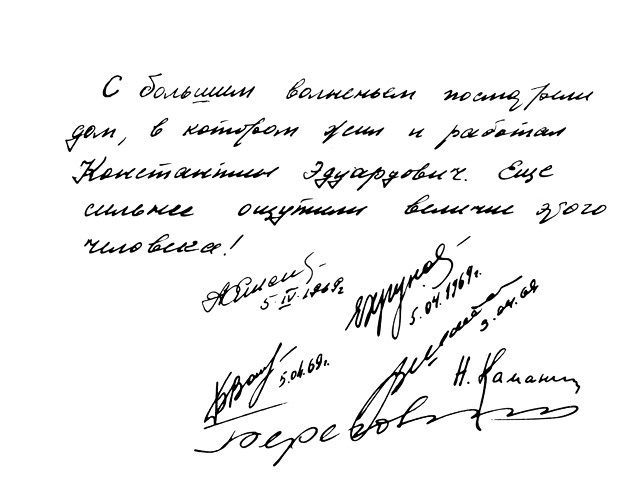 С большим волненьем посмотрели
дом, в котором жил и работал
Константин Эдуардович. Еще
сильнее ощутили величие этого
человека!
5.IV.1969г
ЕХрунов 5.04.1969г.
5.04.69
5.04.69г.
Н. Каманин
Береговой